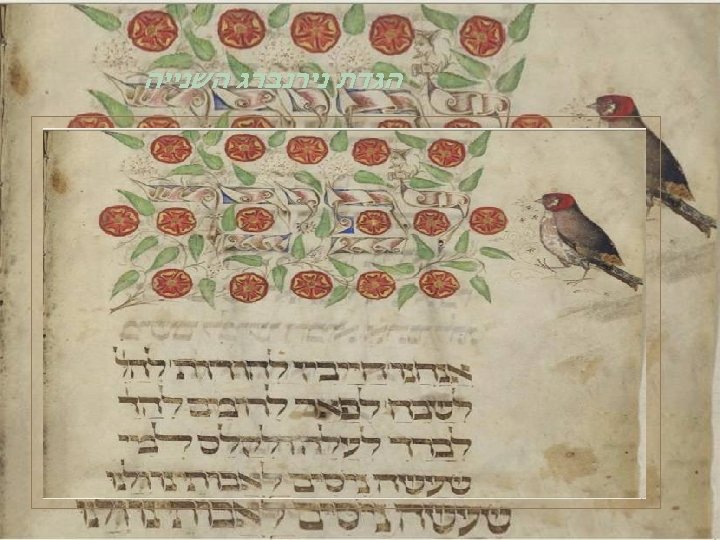 הגדת נירנברג השנייה
אנחנו חייבין להודות להל
לשבח לפאר לרומם להד
לברך לעלה ולקלס למי
שעשה ניסים לאבותינו ולנו
שעשה ניסים לאבותינו ולנו